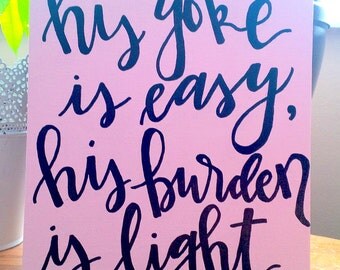 his yoke
is easy,
his burden
is light